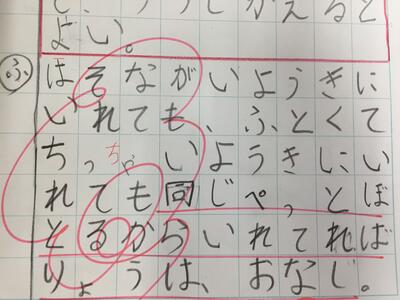 よい。
ふ
ほそながいようきに
いれても、ふとくて
ちっちゃいようきにい
れても同じぺっとぼ
とるからいれてれば
りょうは、おなじ。